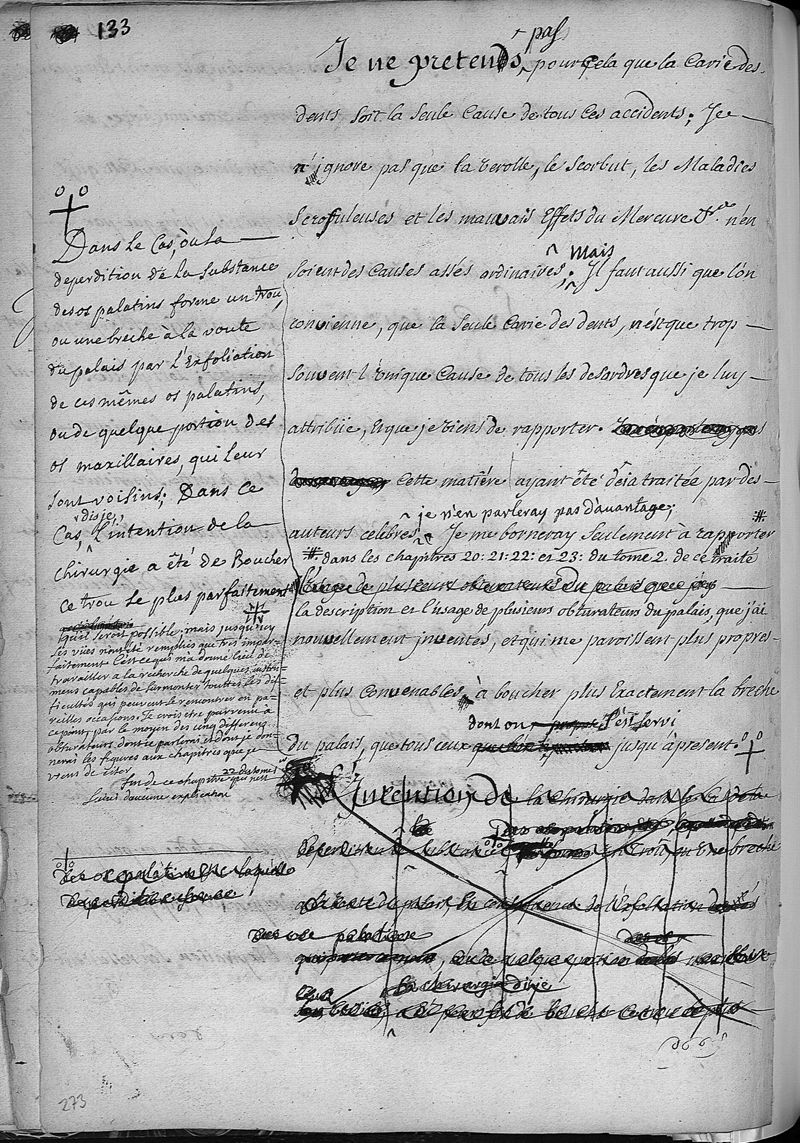 133
pas
Je ne pretends pour cela que la Carie des
dents soit la seule Cause de tous ces accidents; Je
n'ignore pas que la verolle, le scorbut, les Maladies
scrofuleuses et les mauvais Effets du Mercure &c. n'en
soient des Causes assés ordinaires; Mais Il faut aussi que l'on
convienne, que la seule Carie des dents, n'est que trop
souvent l'unique Cause de tous les desordres que je luy
attribüe, et que je viens de rapporter.
Cette matiére ayant été déja traitée par des
auteurs celébres, je n'en parleray pas d'avantage;
Je me borneray seulement à rapporter #
# dans les chapitres 20: 21: 22: et 23: du tome 2. de ce traité
la description et l'usage de plusieurs obturateurs du palais, que j'ai
nouvellement inventés, et qui me paroissent plus propres
et plus convenables, à boucher plus Exactement la breche
du palais, que tous ceux dont on s'est servi jusqu'à present.
Dans le Cas, où la
deperdition de la substance
des os palatins forme un trou,
ou une breche à la voute
du palais par l'Exfoliation
de ces mêmes os palatins,
ou de quelque portion des
os maxillaires, qui leur
sont voisins; Dans ce
Cas, dis je, l'intention de la
Chirurgie a été de Boucher
ce trou le plus parfaitement
qu'il seroit possible; mais jusqu'icy
ses vües n'ont été remplies que tres impar-
faitement. C'est ce qui m'a donné lieu de
travailler à la recherche de quelques instru-
mens capables de surmonter touttes les dif-
ficultés qui peuvent se rencontrer en pa-
reilles occasions. Je crois etre parvenu à
ce point, par le moyen des cinq differens
obturateurs dont je parlerai et dont je don-
nerai les figures aux chapitres que je
viens de citer.
fin de ce chapitre 22 du tome 1 qui n'est
suivi d'aucune explication
L'intention de la chirurgie dans le Cas
deperdition de substance un trou, ou une breche
à la voute du palais, en consequence de l'Exfoliation
des os palatins
ou de quelque portion
la chirurgie dis je
de Boucher ce trou le plus
273